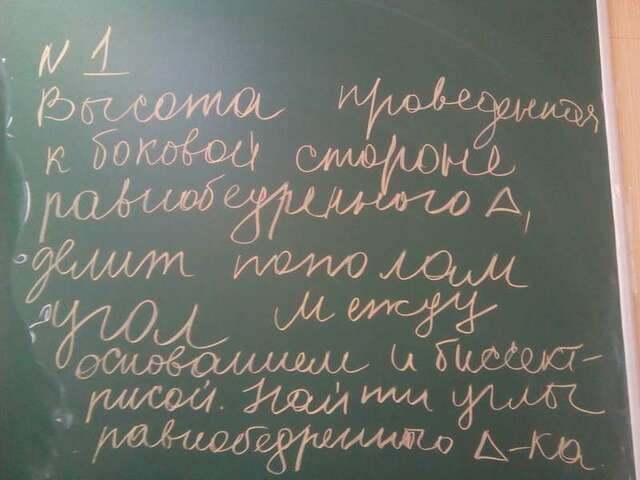 N 1
Высота проведенная
к боковой стороне
равнобедренного Δ,
делит пополам
угол между
основанием и биссект-
рисой. Найти углы
равнобедренного Δ-ка.